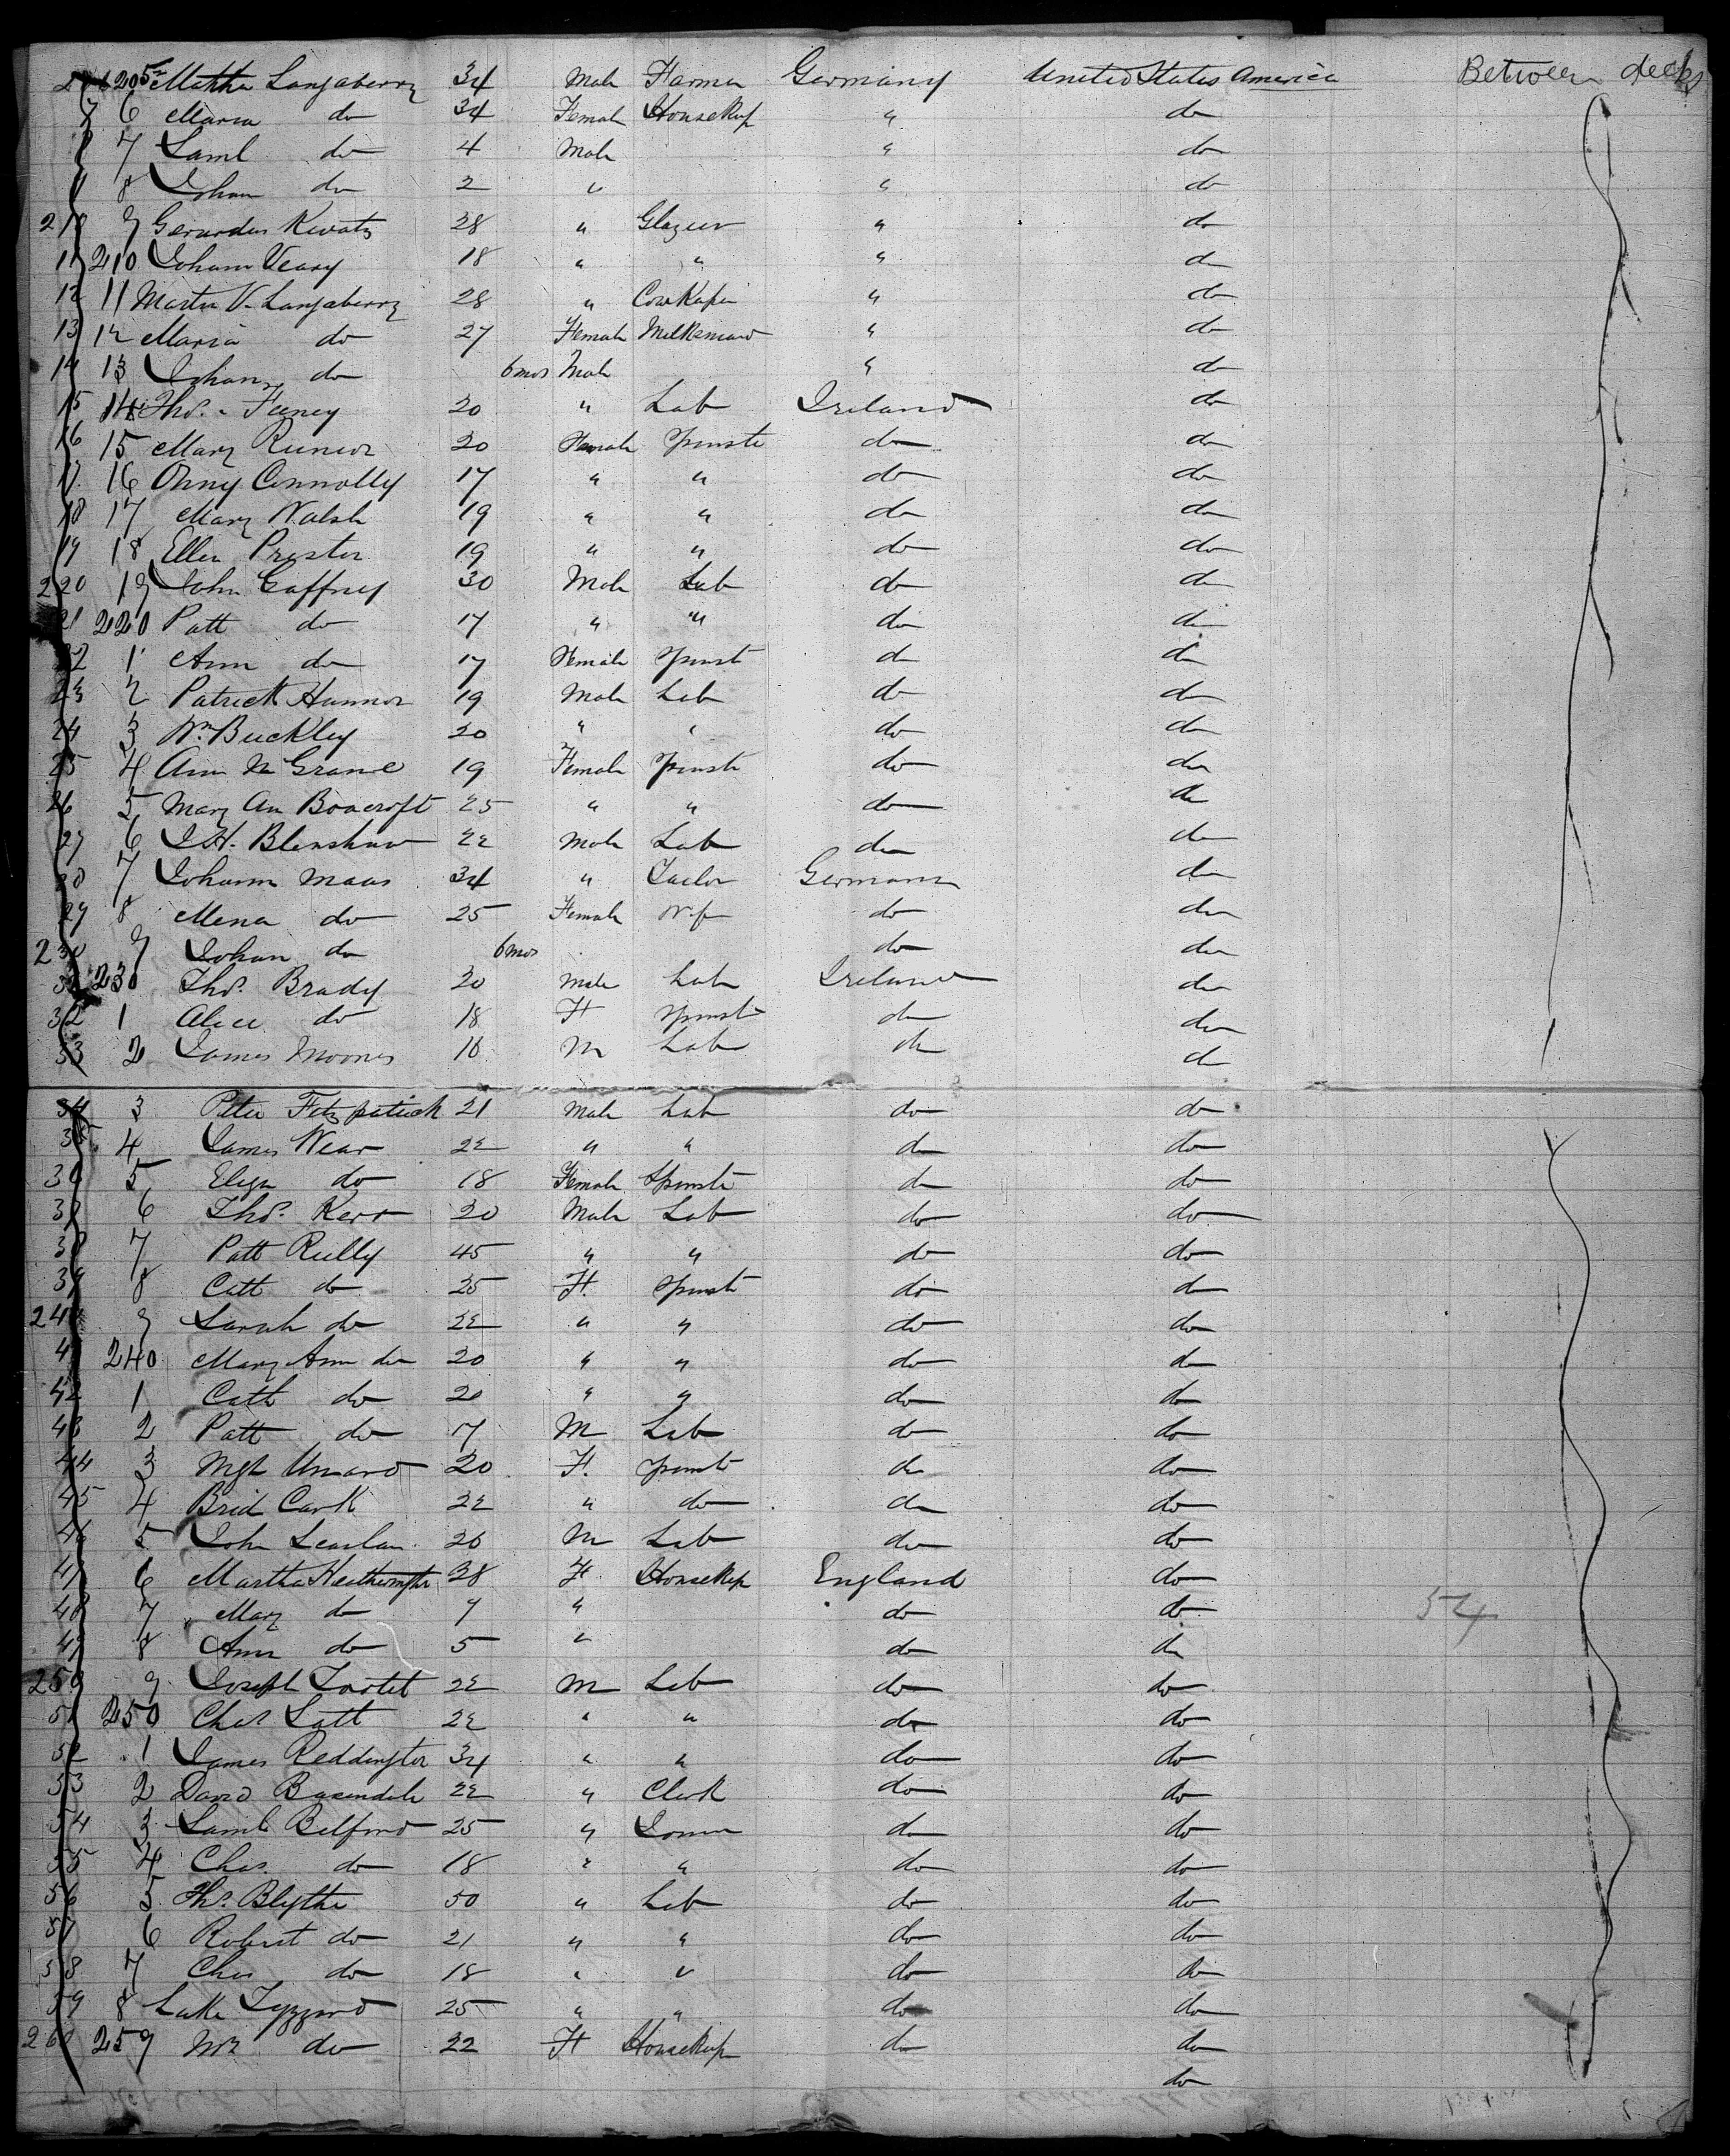 206 205 Matthw Langaberry 34 Male Farmer Germany United States America Between decks
7 6 Maria do 34 Female Housekeep " do
8 7 Saml do 4 Male " do
9 8 Johan do 2 " " do
210 9 Gerardus Kwatz 28 " Glazier " do
11 210 Johann Veary 18 " " " do
12 11 Martin V. Langaberry 28 " Cow Keeper " do
13 12 Maria do 27 Female Milksmaid " do
14 13 Johan do 6 mos Male " do
15 14 Thos. Feeney 20 " Lab Ireland do
16 15 Mary 20 Female Spinste do do
17 16 Connolly 17 " " do do
18 17 Mary Walsh 19 " " do do
19 18 Ellen Preston 19 " " do do
220 19 John Gaffney 30 Male Lab do do
21 220 Patt do 17 " " do do
22 1 Ann do 17 Female Spinst do do
23 2 Patrick Hannon 19 Male Lab do do
24 3 Wm Buckley 20 " " do do
25 4 Ann 19 Female Spinst do do
26 5 Mary An Boacroft 25 " " do do
27 6 J.H. Blenshaw 22 Male Lab do do
28 7 Johann Maas 34 " Tailor Germany do
29 8 Mena do 25 Female Wife do do
230 9 Johan do 6 mos do do
31 230 Thos. Brady 20 Male Lab Ireland do
32 1 Alice do 18 F Spinst do do
33 2 James Mooney 16 M Lab do do
34 3 Peter Fitzpatrick 21 Male Lab do do
35 4 James Wear 22 " " do do
36 5 Eliza do 18 Female Spinste do do
37 6 Thos. Kerr 20 Male Lab do do
38 7 Patt Reilly 45 " " do do
39 8 Cath do 25 F. Spinst do do
240 9 Sarah do 22 " " do do
41 240 Mary Ann do 20 " " do do
42 1 Cath do 20 " " do do
43 2 Patt do 17 M Lab do do
44 3 Mgt 20 F. Spinst do do
45 4 Brid Cark 22 " do do do
46 5 John Scanlan 26 M Lab do do
47 6 Martha Heatherington 38 F Housekeep England do
48 7 " Mary do 7 " do do 54
49 8 Ann do 5 " do do
250 9 Joseph 22 M Lab do do
51 250 Chas Latt 22 " " do do
52 1 James Reddington 34 " " do do
53 2 David Baxendale 22 " Clerk do do
54 3 Saml Belford 25 " Joiner do do
55 4 Chas. do 18 " " do do
56 5 Ths. Blythe 50 " Lab do do
57 6 Robert do 21 " " do do
58 7 Chas do 18 " " do do
59 8 Luke Tyzzard 25 " " do do
260 259 Mrs do 22 F Housekeep do do
do